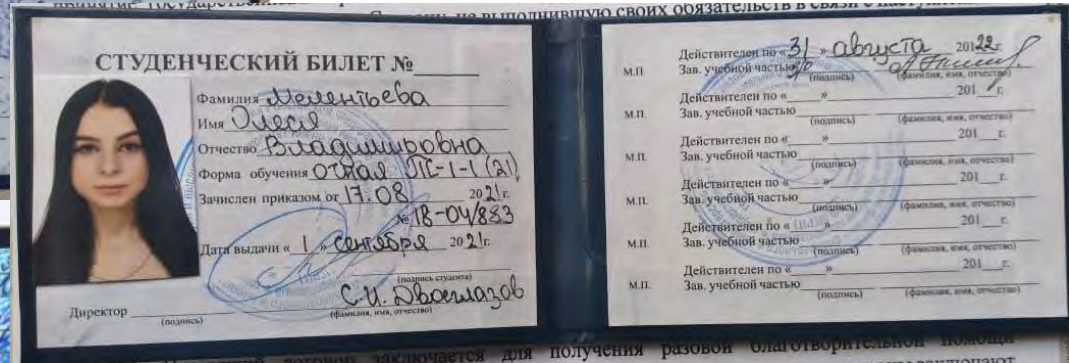 Сторону, не выполнившую своих обязательств в связи с
СТУДЕНЧЕСКИЙ БИЛЕТ №______
Фамилия Мелентьева
Имя Олеся
Отчество Владимировна
Форма обучения очная ПС-1-1 (21)
Зачислен приказом от 17.08 2021г.
№ 18-04/883
Дата выдачи « 1 » сентября 2021г.
(подпись студента)
С.И. Двоеглазов
Директор ____________
(подпись) (фамилия, имя, отчество)
Действителен по « 31 » августа 2022г.
М.П. Зав. учебной частью
(подпись) (фамилия, имя, отчество)
Действителен по «____» ____________ 201__г.
М.П. Зав. учебной частью
(подпись) (фамилия, имя, отчество)
Действителен по «____» ____________ 201__г.
М.П. Зав. учебной частью
(подпись) (фамилия, имя, отчество)
Действителен по «____» ____________ 201__г.
М.П. Зав. учебной частью
(подпись) (фамилия, имя, отчество)
Действителен по «____» ____________ 201__г.
М.П. Зав. учебной частью
(подпись) (фамилия, имя, отчество)
Действителен по «____» ____________ 201__г.
М.П. Зав. учебной частью
(подпись) (фамилия, имя, отчество)
договор заключается для получения разовой благотворительной помощи